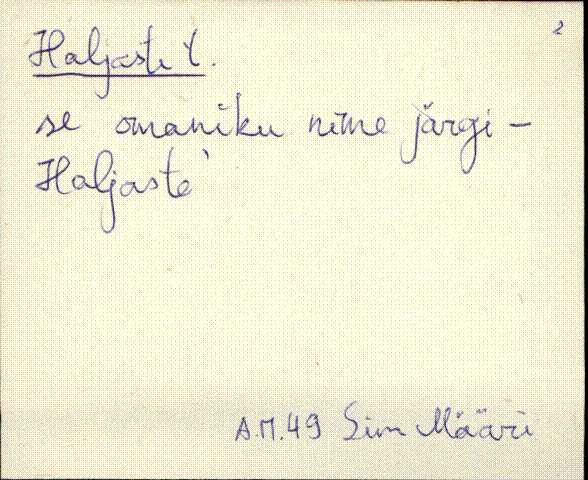 2
Haljaste t.
se omaniku nime järgi –
Haljaste'
A.M.49 Sim Määri